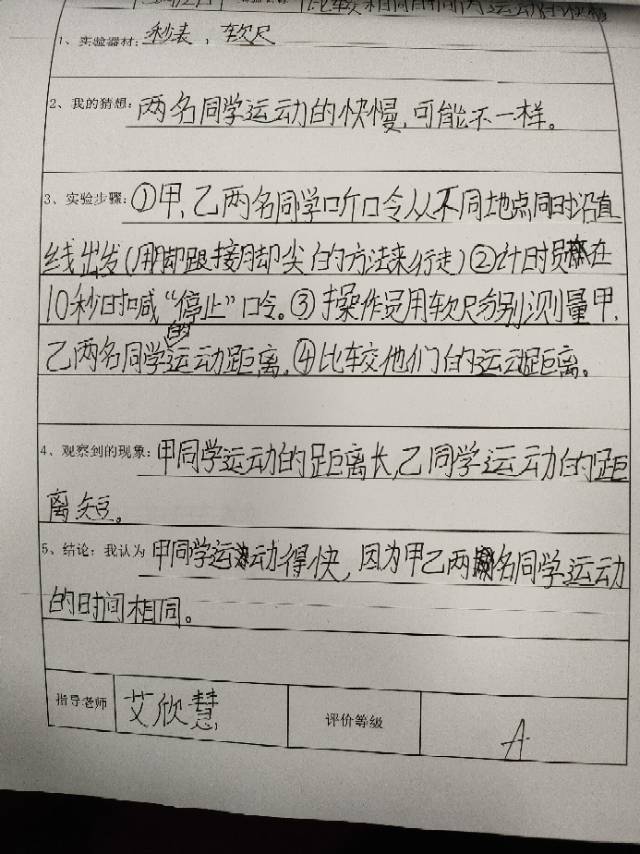 比较相同时间内运动的快慢
1、实验器材：秒表，软尺
2、我的猜想：两名同学运动的快慢，可能不一样。
3、实验步骤：①甲、乙两名同学听口令从不同地点同时沿直
线出发(用脚跟接脚尖的方法来行走)②计时员在
10秒时喊“停止”口令。③操作员用软尺分别测量甲、
乙两名同学的运动距离。④比较他们的运动距离。
4、观察到的现象：甲同学运动的距离长，乙同学运动的距
离短。
5、结论：我认为甲同学运动得快，因为甲乙两名同学运动
的时间相同。
指导老师 艾欣慧 评价等级 A